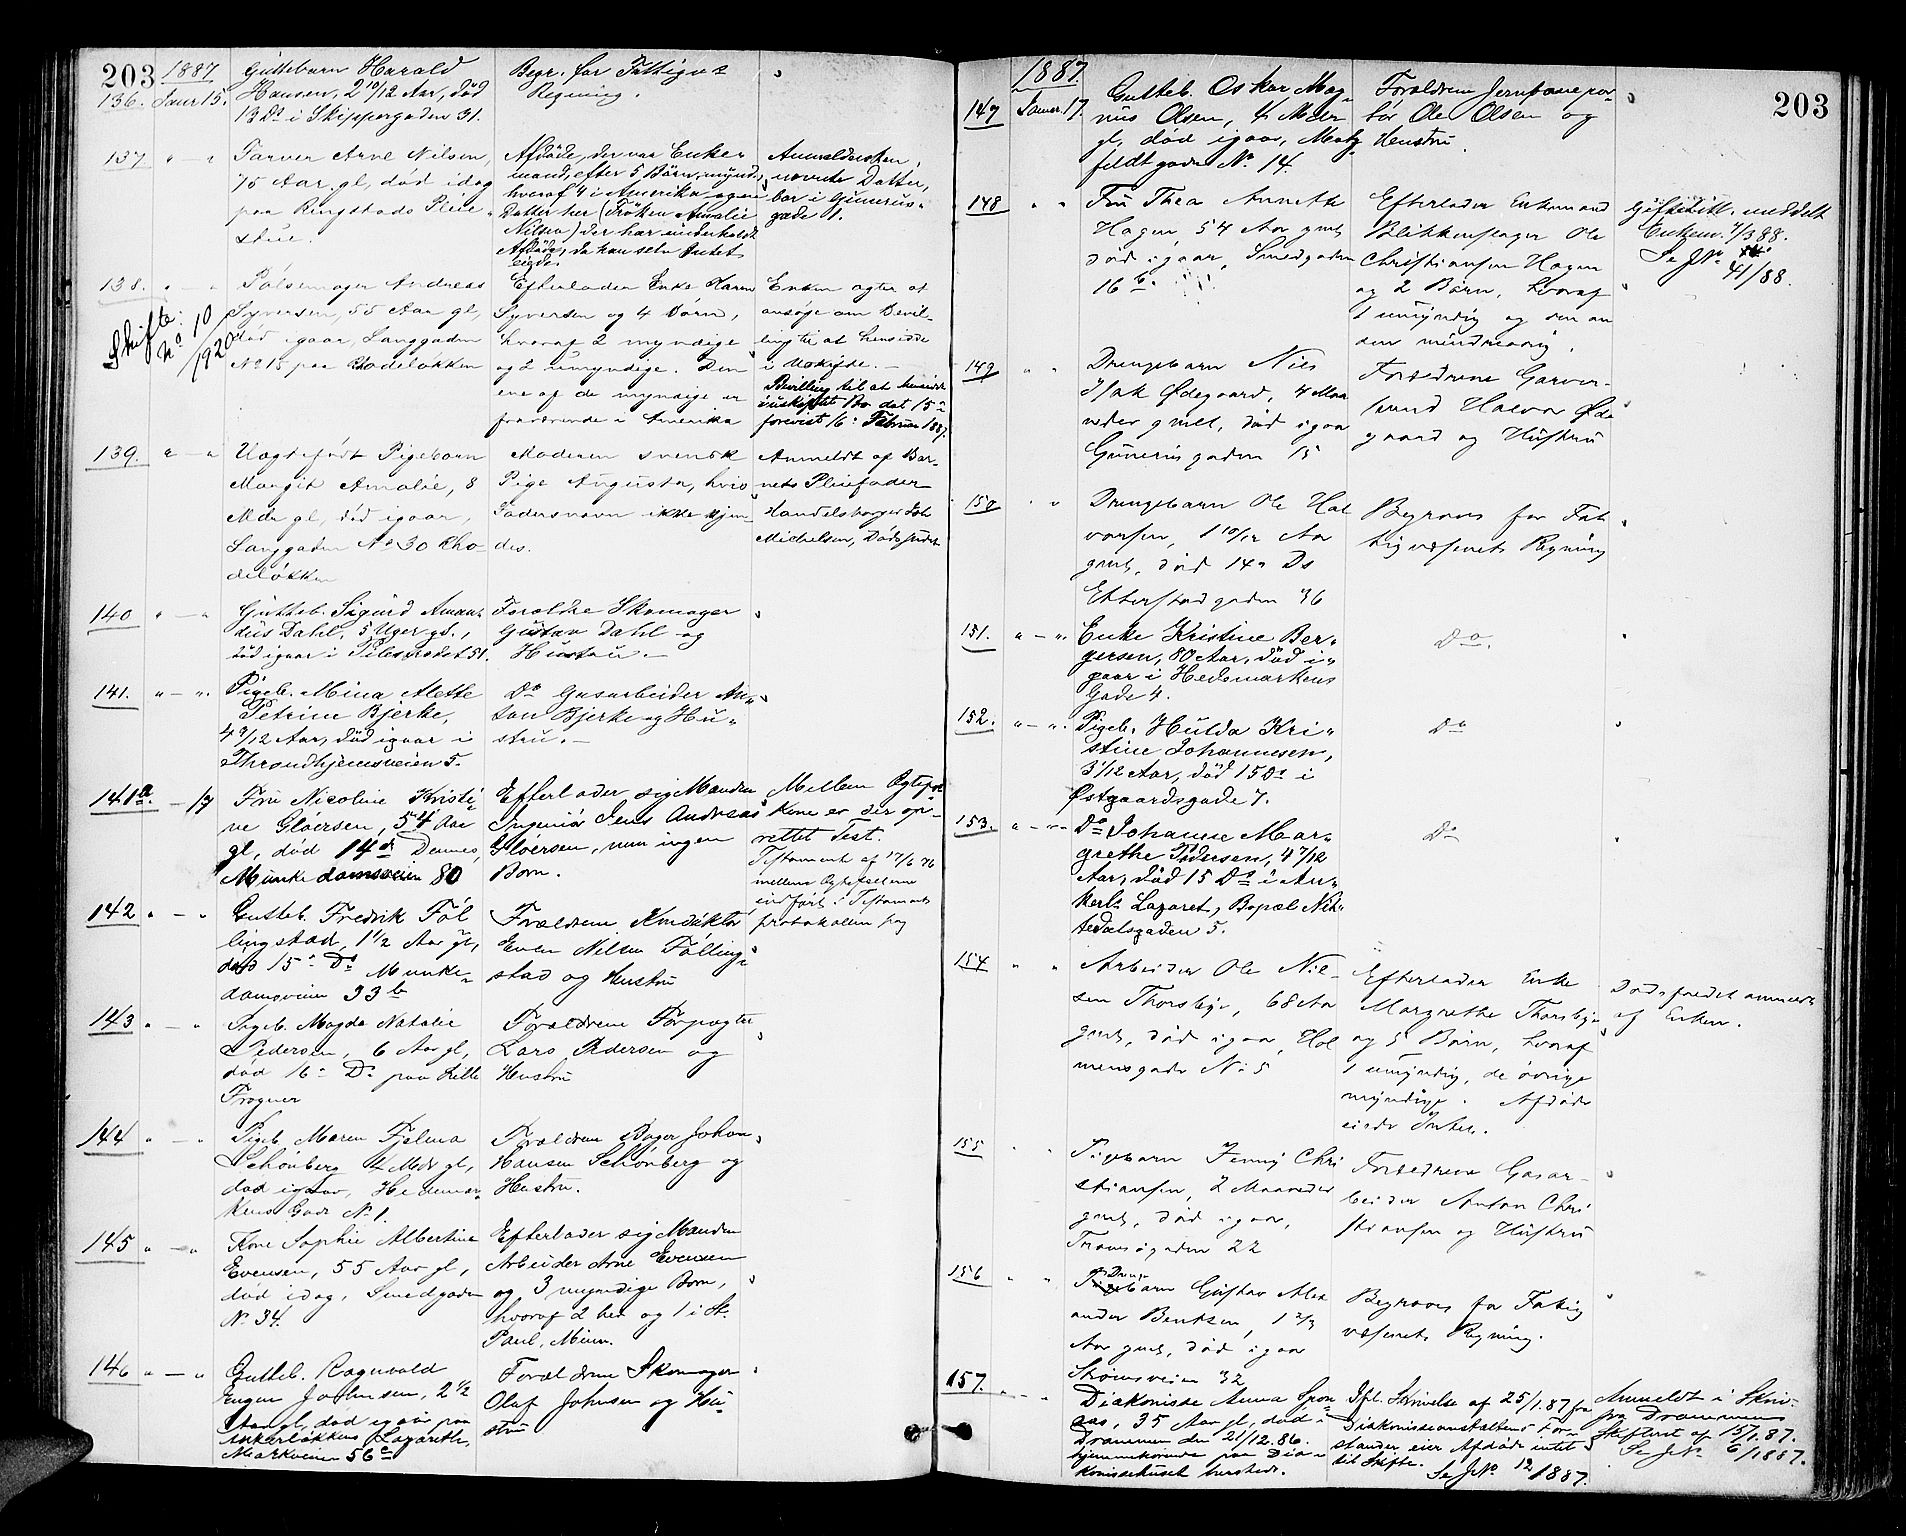 203 1887
136. Januar 15. Guttebarn Harald
Hansen, 2 10/12 Aar, død
13 Ds i Skippergaden 31.
Begr. for Fattigvs
Regning.
137 " - " Farver Arne Nilsen,
75 Aar gl, død idag
paa Ringstads Pleie
stue.
Afdøde, der var Enke
mand, efter 5 Børn, mynd,
hvoraf 4 i Amerika og en
Datter her (Frøken Amalie
Nilsen) der har underholdt
Afdøde, da han selv Intet
eiede.
Anmeldersken,
nævnte Datter,
bor i Gunerus-
gade 1.
138. " - " Pølsemager Andreas
Syversen, 55 Aar gl,
død igaar, Langgaden
No 15 paa Rhodeløkken
Skifte:
No 10
/1920
Efterlader Enke Karen
Syversen og 4 Børn,
hvoraf 2 myndige
og 2 umyndige. Den
ene af de myndige er
fraværende i Amerika
Enken agter at
ansøge om Bevil-
ling til at hensidde
i Uskifte. -
Bevilling til at hensidde
i uskiftet Bo dat 15de
forevist 16. Februar 1887.
139. " - " Uægtefødt Pigebarn
Margit Amalie, 8
Mdr gl, død igaar,
Langgaden No 30 Rho-
deløkken
Moderen svensk
Pige Augusta, hvis
Fadersnavn ikke kjen-
des.
Anmeldt af Bar-
nets Pleiefader
Handelsborger Joh
Michelsen, Dødsfaldet
140 " - " Gutteb. Sigurd Aman-
dus Dahl, 5 Uger gl.,
død igaar i Pilestrædet 51.
Forældre Skomager
Gustav Dahl og
Hustru. -
141. " - ". Pigeb. Mina Alette
Petrine Bjerke,
4 9/12 Aar, død igaar i
Throndhjemsveien 5.
Do Gasarbeider An-
ton Bjerke og Hu-
stru. -
141a. - 17 Fru Nicoline Kristi-
ne Gløersen, 54 Aar
gl, død 14de Dennes,
Munkedamsveien 80
Efterlader sig Manden
Ingeniør Jens Andreas
Gløersen, men ingen
Børn.
Mellem Ægtefol-
kene er der op-
rettet Test.
Testament af 17/6 76
mellem Ægtefællerne
indført i Testaments
protokollen pag
142 " - " Gutteb. Fredrik Føl
lingstad, 1 1/2 Aar gl,
død 15de Ds Munke-
damsveien 33b
Forældrene Konduktør
Even Nilsen Følling-
stad og Hustru
143 " - " Pigeb. Magda Natalie
Pedersen, 6 Aar gl,
død 16de Ds paa Lille
Frogner
Forældrene Forpagter
Lars Pedersen og
Hustru
144 " - " Pigeb. Maren Fjelma
Schønberg 4 Mdr gl,
død igaar, Hedemar-
kens Gade No 1.
Forældrene Bager Johan
Hansen Schønberg og
Hustru.
145 " - " Kone Sophie Albertine
Evensen, 55 Aar gl,
død idag, Smedgaden
No 34.
Efterlader sig Manden
Arbeider Arne Evensen
og 3 myndige Børn,
hvoraf 2 her og 1 i St.
Paul, Minn.
146 " - " Gutteb. Ragnvald
Eugen Johnsen, 2 1/2
Aar gl, død igaar paa
Ankerløkkens Lazareth,
Markveien 56a
Forældrene Skomager
Olaf Johnsen og Hu-
stru
1887. 203
147 Januar 17. Gutteb. Oskar Mag-
nus Olsen, 4 Mdr
gl, død igaar, Motz
feldtsgade No 14.
Forældrene Jernstøber
Ole Olsen og
Hustru.
148 " " Fru Thea Annette
Hagen, 54 Aar gml,
død igaar, Smedgaden
16b.
Efterlader Enkemand
Blikkenslager Ole
Christiansen Hagen
og 2 Børn, hvoraf
1 umyndig og den an
den mindreaarig.
Skifteattest meddelt
Enkem. 7/3 88.
Se JNo
41/88.
149 " " Drengebarn Nils
Isak Ødegaard, 4 Maa
neder gml, død igaar
Gunerusgaden 15
Forældrene Garver-
svend Halvor Øde
gaard og Hustru
150 " " Drengebarn Ole Hal
vorsen, 1 10/12 Aar
gml, død 14de Ds
Etterstadgaden 36
Begraves for Fat
tigvæsenets Regning
151. " - ". Enke Kristine Ber-
gersen, 80 Aar, død i-
gaar i Hedemarkens
Gade 4.
Do.
152. " - ". Pigeb. Hulda Kri-
stine Johannesen,
3 1/12 Aar, død 15 Ds i
Østgaardsgade 7.
Do
153. " - " Do Johanne Mar-
grethe Pedersen, 4 7/12
Aar, død 15 Ds i An-
kerl. Lazaret, Bopæl Nit-
tedalsgaden 5.
Do
154 " " Arbeider Ole Nil-
sen Thorsbye, 68 Aar
gml, død igaar, Hol
mensgade No 5
Efterlader Enke
Margrethe Thorsbye
og 5 Børn, hvoraf
1 umyndig, de øvrige
myndige. Afdøde
eiede Intet.
Dødsfaldet anmeldt
af Enken.
155 " " Pigebarn Jenny Chri
stiansen, 2 Maaneder
gml, død igaar,
Tromsøgaden 22
Forældrene Gasar-
beider Anton Chri
stiansen og Hustru
156 " " Drenge
Pigebarn Gustav Alex
ander Bentsen, 1 2/3
Aar gml, død igaar
Strømsveien 32
Begraves for Fattig
væsenets Regning.
157. " - " Diakonisse Anna Gron
aas, 35 Aar gl, død i
Drammen den 21/12.86.
hjemmehørende paa Dia-
konissehuset hersteds.
Ifl. Skrivelse af 25/1.87 fra
Diakonisseanstaltens For-
stander eier Afdøde intet
til Skifte.
Se JNo 12/1887.
Anmeldt i Skriv.
fra Drammens
Skifteret af 15/1.87.
Se JNo 6/1887.